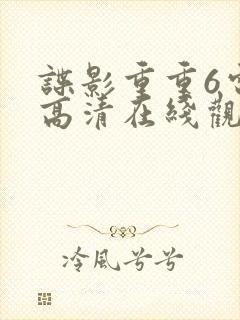 諜影重重6
高清在綫觀
冷風兮兮